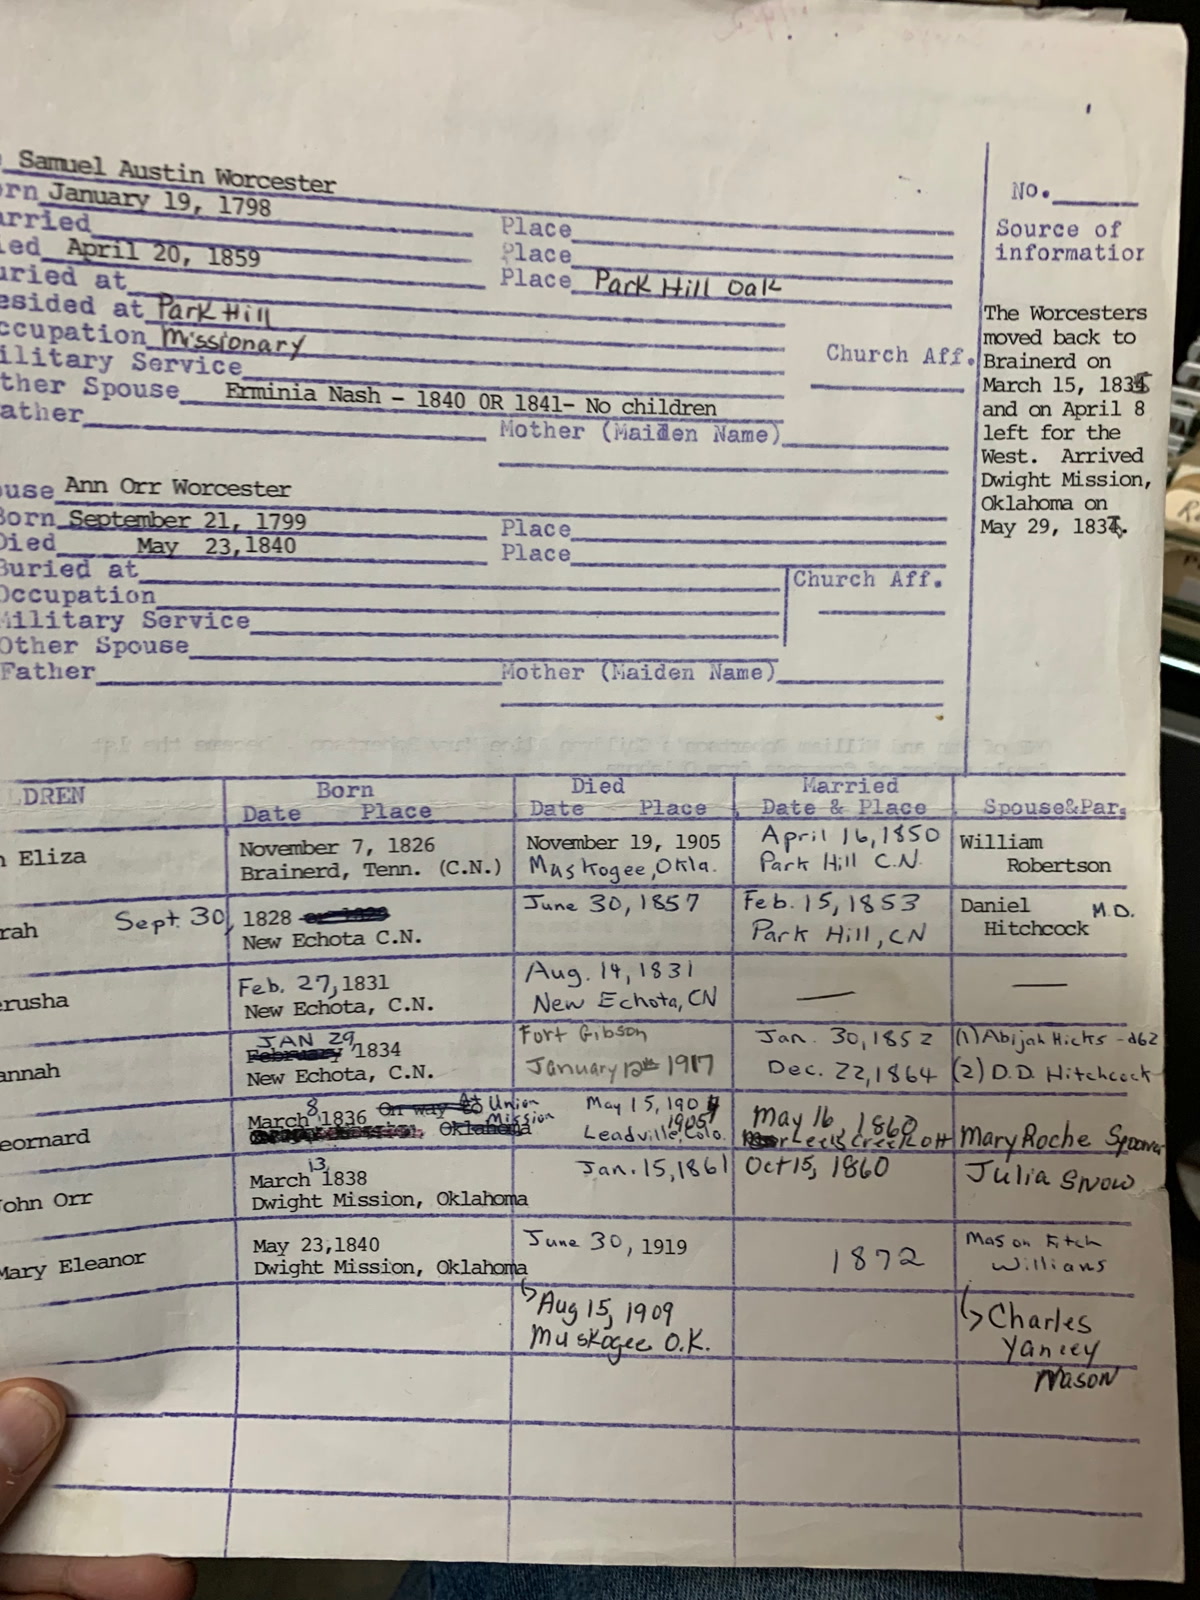 Samuel Austin Worcester
orn January 19, 1798
arried Place
ied April 20, 1859 Place
uried at Place Park Hill Oak
esided at Park Hill
ccupation Missionary
ilitary Service Church Aff.
ther Spouse Erminia Nash - 1840 OR 1841- No children
ather Mother (Maiden Name)
No.
Source of
information
The Worcesters
moved back to
Brainerd on
March 15, 1835
and on April 8
left for the
West. Arrived
Dwight Mission,
Oklahoma on
May 29, 183
ouse Ann Orr Worcester
Born September 21, 1799 Place
Died May 23,1840 Place
Buried at Church Aff.
Occupation
Military Service
Other Spouse
Father Mother (Maiden Name)
LDREN Born Died Married
Date Place Date Place Date & Place Spouse&Par.
n Eliza November 7, 1826 November 19, 1905 April 16, 1850 William
Brainerd, Tenn. (C.N.) Muskogee, Okla. Park Hill C.N. Robertson
rah Sept. 30, 1828 June 30, 1857 Feb. 15, 1853 Daniel M.D.
New Echota C.N. Park Hill, CN Hitchcock
erusha Feb. 27, 1831 Aug. 14, 1831 — —
New Echota, C.N. New Echota, CN
annah JAN 29, February 1834 Fort Gibson Jan. 30, 1852 (1) Abijah Hicks - d62
New Echota, C.N. January 12th 1917 Dec. 22, 1864 (2) D.D. Hitchcock
eornard March 8, 1836 On way to At Union Mission May 15, 190 1905 May 16, 1860 Mary Roche
Oklahoma Leadville, Colo. Creek
John Orr March 13, 1838 Jan. 15, 1861 Oct 15, 1860 Julia Snow
Dwight Mission, Oklahoma
Mary Eleanor May 23,1840 June 30, 1919 1872 Mason Fitch
Dwight Mission, Oklahoma Willians
↳ Aug 15, 1909 ↳ Charles
Muskogee O.K. Yancey
Mason